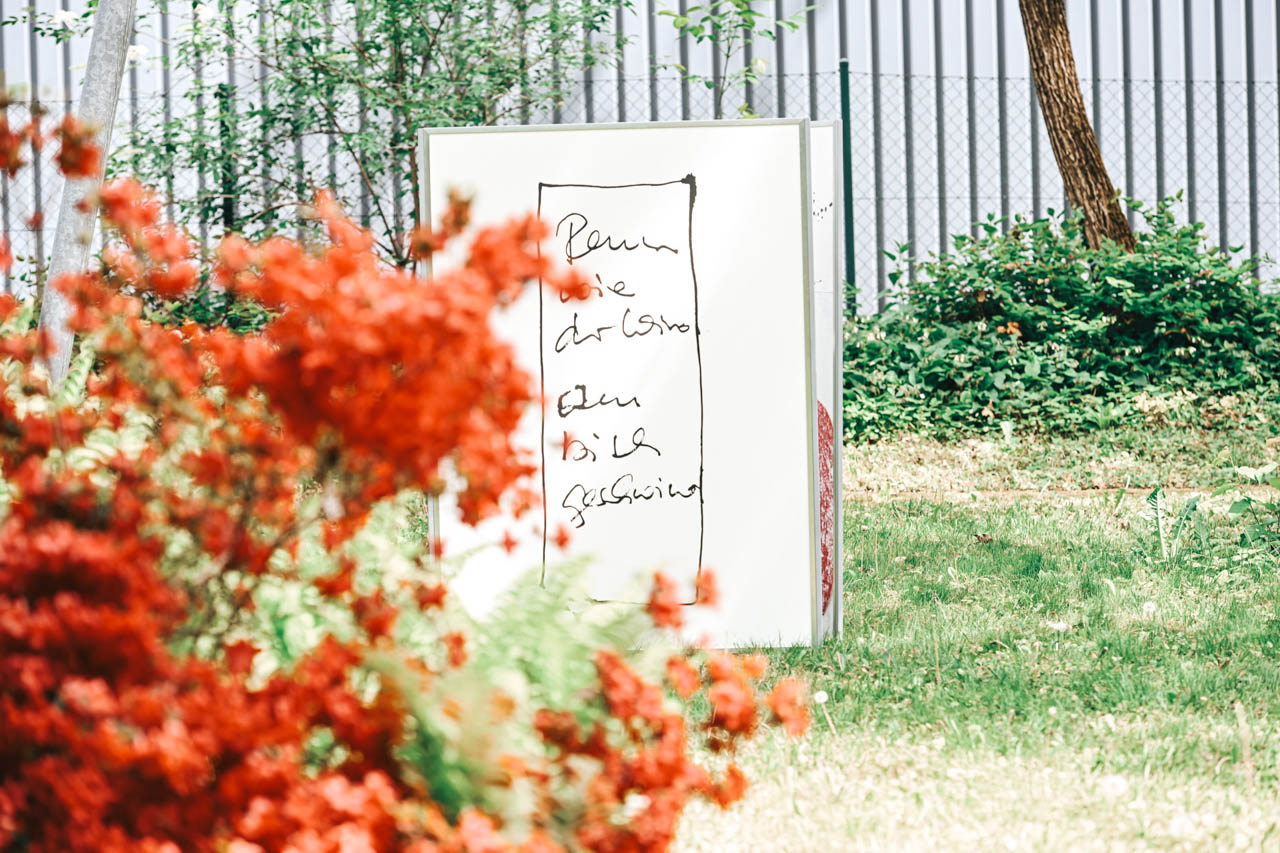 Renn
wie
der Wind
Eben
bist
geschwind